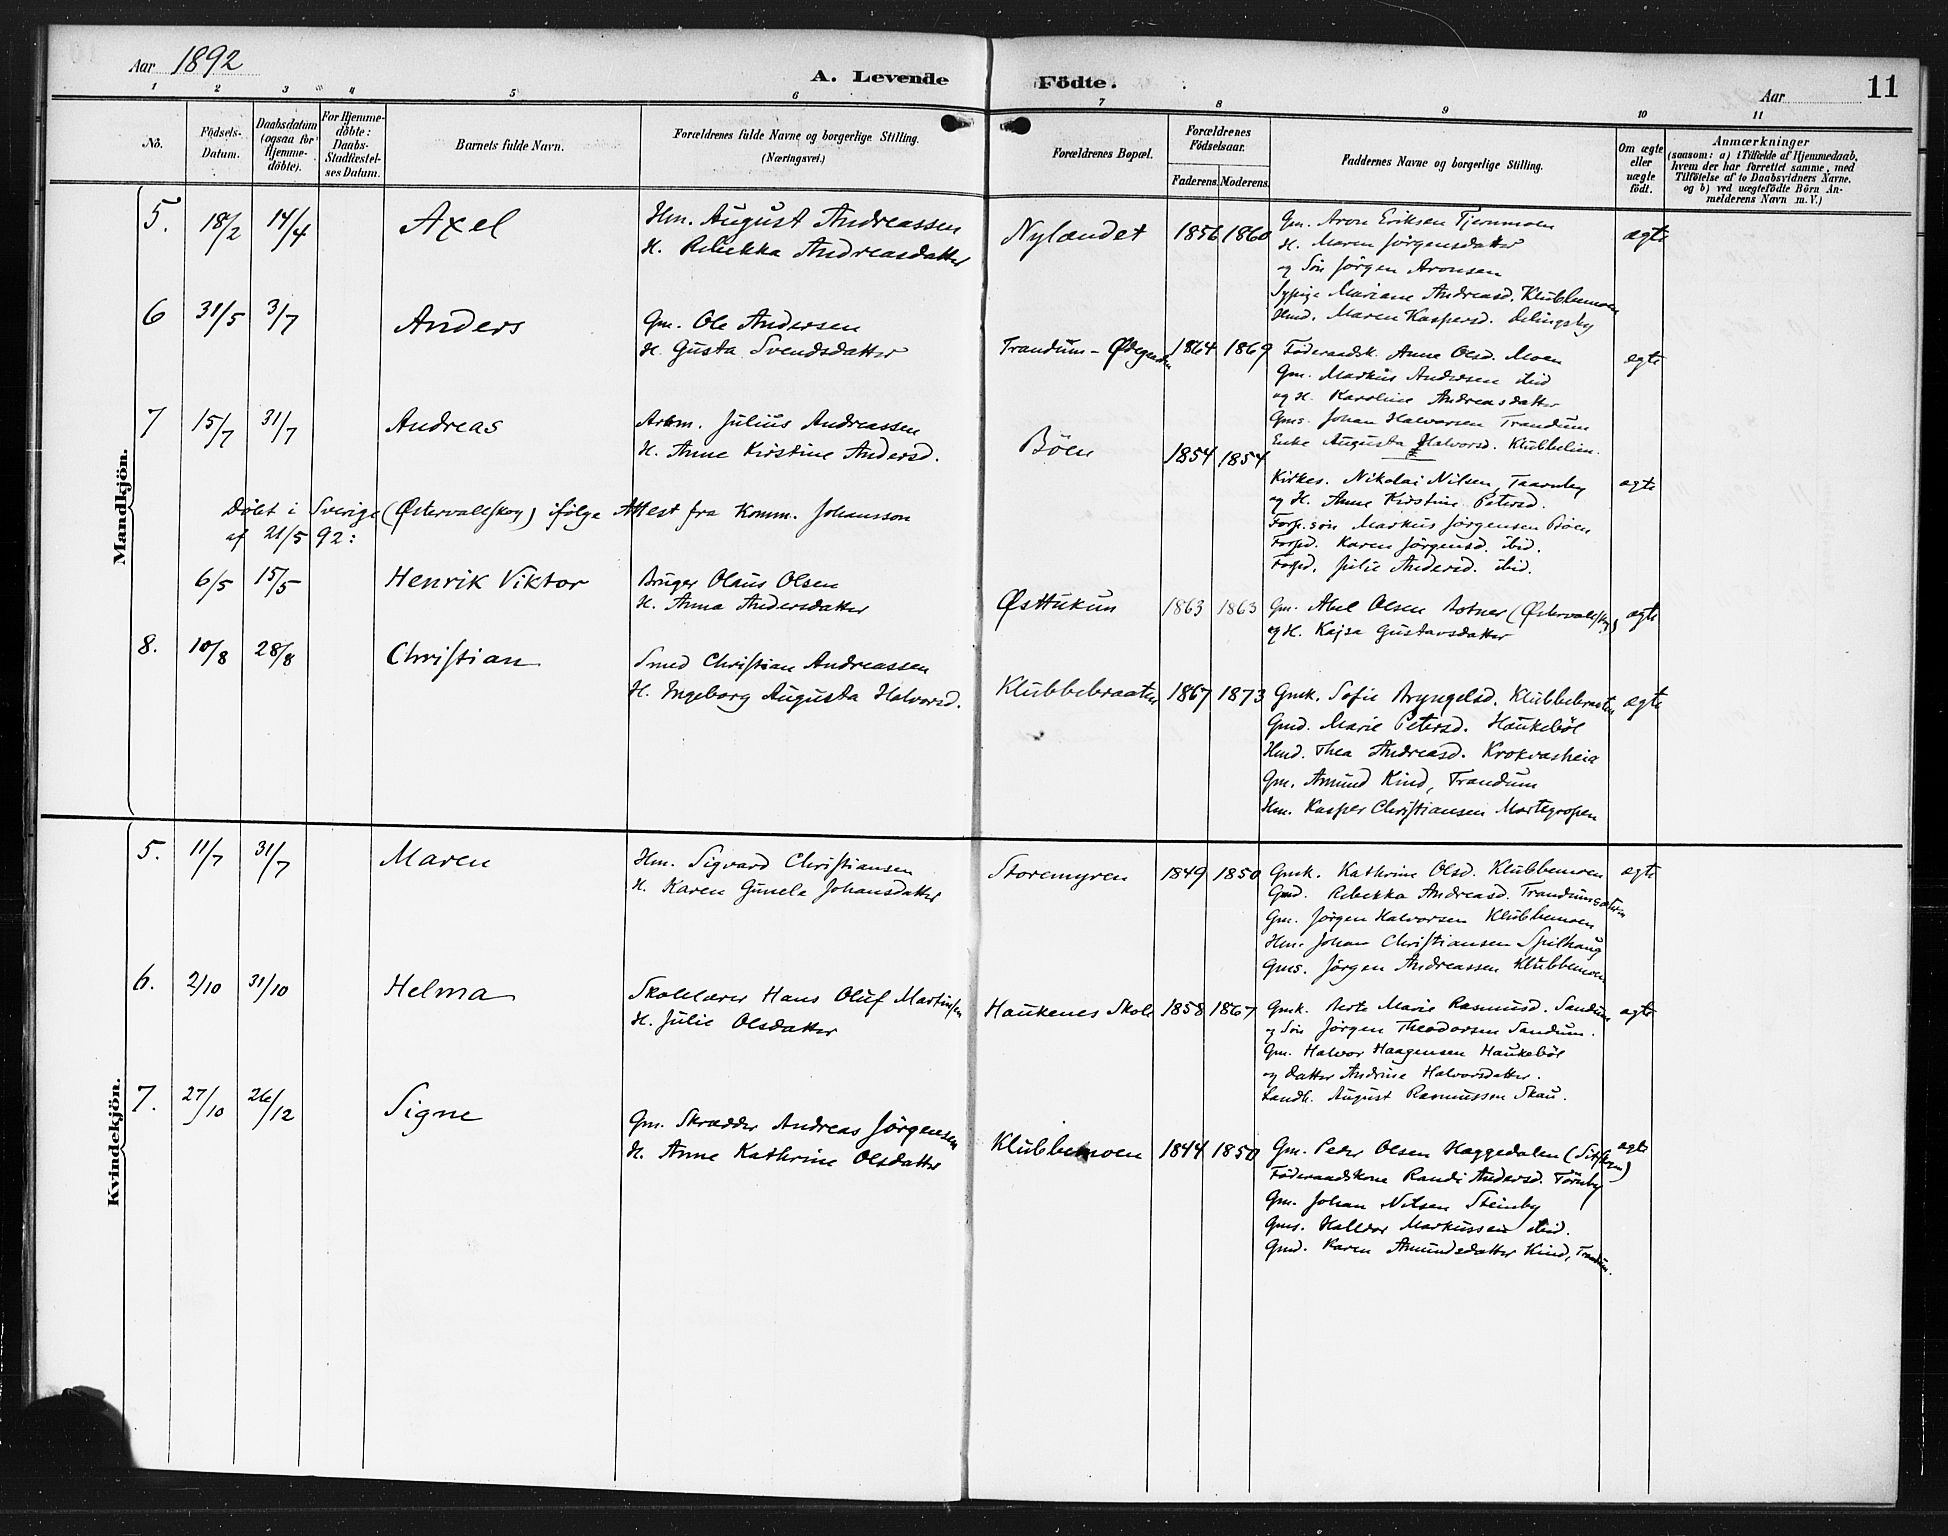 Aar 1892
A. Levende Födte.
Aar
11
1 2 3 4 5 6 7 8 9 10 11
No.
Födsels-Datum.
Daabsdatum (ogsaa for Hjemme-döbte).
For Hjemme-döbte: Daabs-Stadfæstel-ses Datum.
Barnets fulde Navn.
Forældrenes fulde Navne og borgerlige Stilling. (Næringsvei.)
Forældrenes Bopæl.
Forældrenes Födselsaar.
Faderens. Moderens.
Faddernes Navne og borgerlige Stilling.
Om ægte eller uægte födt.
Anmærkninger
(saasom: a) i Tilfælde af Hjemmedaab, hvem der har forrettet samme, med Tilföielse af to Daabsvidners Navne. og b) ved uægtefödte Börn An-melderens Navn m. V.)
Mandkjön.
5. 18/2 14/4 Axel
Hm. August Andreassen
H. Rebekka Andreasdatter
Nylændet 1856 1860
Gm. Aron Eriksen Tjernmoen
H. Maren Jörgensdatter
og Sön Jörgen Aronsen
Sypige Mariane Andreasd. Klubbemoen
Hmd. Maren Kaspersd.
ægte
6 31/5 3/7 Anders
Gm. Ole Andersen
H. Gusta Svendsdatter
Trandum - 1864 1869
Føderaadsk. Anne Olsd. Moen
Gm. Markus Andersen ibid
og H. Karoline Andreasdatter
Gms. Johan Halvorsen Trandum
Enke Augusta Halvorsd. Klubbelien.
ægte
7 15/7 31/7 Andreas
Arbm. Julius Andreassen
H. Anne Kirstine Andersd.
Böen 1854 1854
Kirkes. Nikolai Nilsen, Taarnby
og H. Anne Kirstine Petersd.
Forp. sön Markus Jörgensen Böen
Forpd. Karen Jörgensd. ibid.
Forpd. Julie Andersd. ibid.
ægte
Døbt i Sverige (Østervallskog) ifølge Attest fra Komm. Johansson
af 21/5 92:
6/5 15/5 Henrik Viktor
Bruger Olaus Olsen
H. Anna Andersdatter
Østtukun 1863 1863
Gm. Abel Olsen Botner (Østervallskog)
og H. Kajsa Gustavsdatter
ægte
8. 10/8 28/8 Christian
Smed Christian Andreassen
H. Ingeborg Augusta Halvorsd.
Klubbebraaten 1867 1873
Gmk. Sofie Bryngelsd. Klubbebraaten
Gmd. Marie Petersd. Haukeböl
Hmd. Thea Andreasd. Krokvasheia
Gm. Amund Kind, Trandum
Hm. Kasper Christiansen Mortegropen
ægte
Kvindekjön.
5. 11/7 31/7 Maren
Hm. Sigvard Christiansen
H. Karen Gunele Johansdatter
Storemyren 1849 1850
Gmk. Kathrine Olsd. Klubbemoen
Gmd. Rebekka Andreasd. Trandumsæteren
Gm. Jörgen Halvorsen Klubbemoen
Hm. Johan Christiansen Spilhaug
Gms. Jörgen Andreassen Klubbemoen
ægte
6. 2/10 31/10 Helma
Skolelærer Hans Oluf Martinsen
H. Julie Olsdatter
Haukenes Skole 1858 1867
Gmk. Berte Marie Rasmusd. Sandum
og Sön Jörgen Theodorsen Sandum.
Gm. Halvor Haagensen Haukeböl
og Datter Andrine Halvorsdatter.
Landh. August Rasmussen Skau.
ægte
7. 27/10 26/12 Signe
Gm. Skrædder Andreas Jörgensen
H. Anne Kathrine Olsdatter
Klubbemoen 1844 1850
Gm. Peder Olsen Haggedalen
Föderaadskone Randi Andersd. Törnby
Gm. Johan Nilsen Steinby
Gms. Halvor Markussen ibid.
Gmd. Karen Amundsdatter Kind, Trandum.
ægte